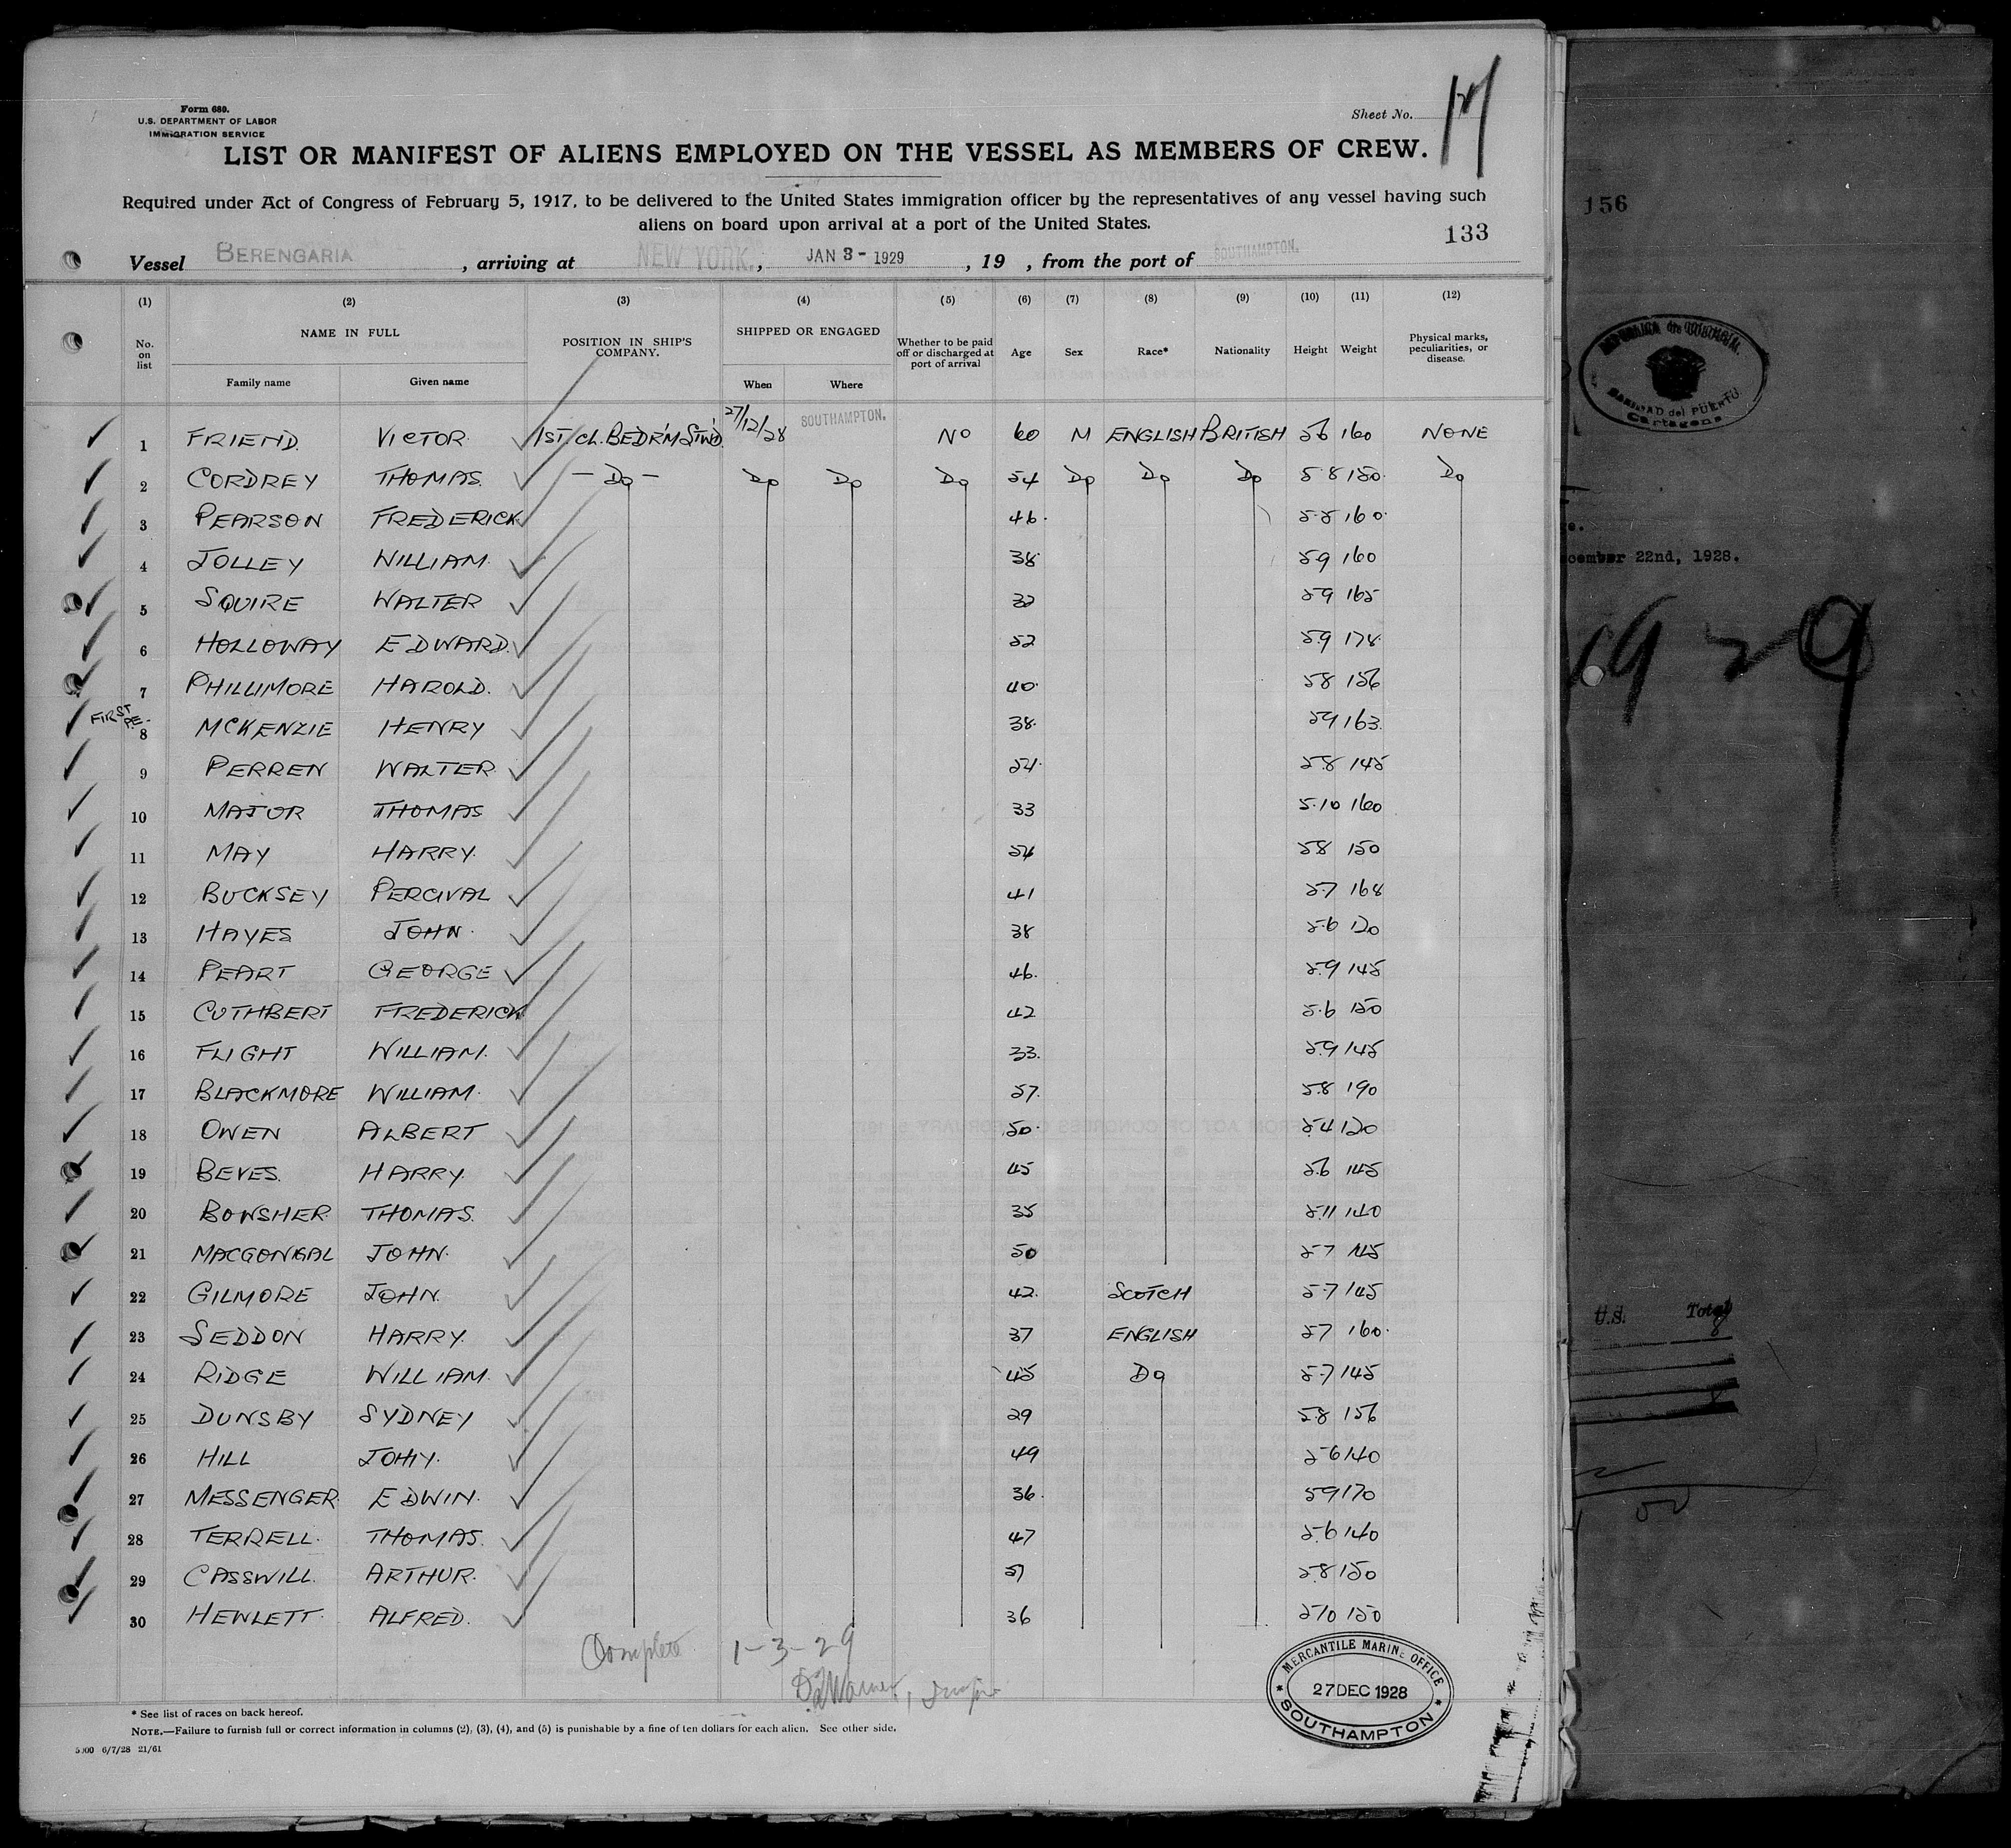 Form 680.
U.S. DEPARTMENT OF LABOR
IMMIGRATION SERVICE
Sheet No.
LIST OR MANIFEST OF ALIENS EMPLOYED ON THE VESSEL AS MEMBERS OF CREW.
Required under Act of Congress of February 5, 1917, to be delivered to the United States immigration officer by the representatives of any vessel having such
aliens on board upon arrival at a port of the United States.
133
Vessel BERENGARIA, arriving at NEW YORK., JAN 3 - 1929, 19 , from the port of SOUTHAMPTON.
(1) (2) (3) (4) (5) (6) (7) (8) (9) (10) (11) (12)
No. on list NAME IN FULL POSITION IN SHIP'S COMPANY. SHIPPED OR ENGAGED Whether to be paid off or discharged at port of arrival Age Sex Race* Nationality Height Weight Physical marks, peculiarities, or disease.
Family name Given name When Where
1 FRIEND. VICTOR 1ST. CL. BEDR'M STW'D. 27/12/28 SOUTHAMPTON. NO 60 M ENGLISH BRITISH 56 160 NONE
2 CORDREY THOMAS. - DO - DO DO DO 54 DO DO DO 58 150. DO
3 PEARSON FREDERICK 46. 5.8 160.
4 JOLLEY WILLIAM. 38. 59 160
5 SQUIRE WALTER 32 59 165
6 HOLLOWAY EDWARD. 52 59 178.
7 PHILLIMORE HAROLD. 40. 58 156
FIRST PE-
8 MCKENZIE HENRY 38. 59 163.
9 PERREN WALTER 54. 5.8 145
10 MAJOR THOMAS 33 5.10 160
11 MAY HARRY. 54 58 150
12 BUCKSEY PERCIVAL 41 5.7 168
13 HAYES JOHN. 38 5.6 120
14 PEART GEORGE 46. 5.9 145
15 CUTHBERT FREDERICK 42 5.6 150
16 FLIGHT WILLIAM. 33. 5.9 145
17 BLACKMORE WILLIAM. 57. 5.8 190
18 OWEN ALBERT 50. 5.4 120
19 BEVES. HARRY. 45 5.6 145
20 BOWSHER THOMAS. 35 5.11 140
21 MACGONIGAL JOHN. 50 57 145
22 GILMORE JOHN. 42. SCOTCH 5.7 145
23 SEDDON HARRY. 37 ENGLISH 57 160.
24 RIDGE WILLIAM. 45 DO 5.7 145
25 DUNSBY SYDNEY 29 5.8 156
26 HILL JOHN. 49 5.6 140
27 MESSENGER. EDWIN. 36. 59 170
28 TERRELL. THOMAS. 47 5.6 140
29 CASSWILL. ARTHUR. 5.8 150
30 HEWLETT. ALFRED. 36 5.10 150
Complete 1-3-29
* See list of races on back hereof.
NOTE.—Failure to furnish full or correct information in columns (2), (3), (4), and (5) is punishable by a fine of ten dollars for each alien. See other side.
6/7/28 21/61
MERCANTILE MARINE OFFICE
27 DEC 1928
SOUTHAMPTON
156
del PUERTO
Cartagena
22nd, 1928.
1929
U.S. Total
8